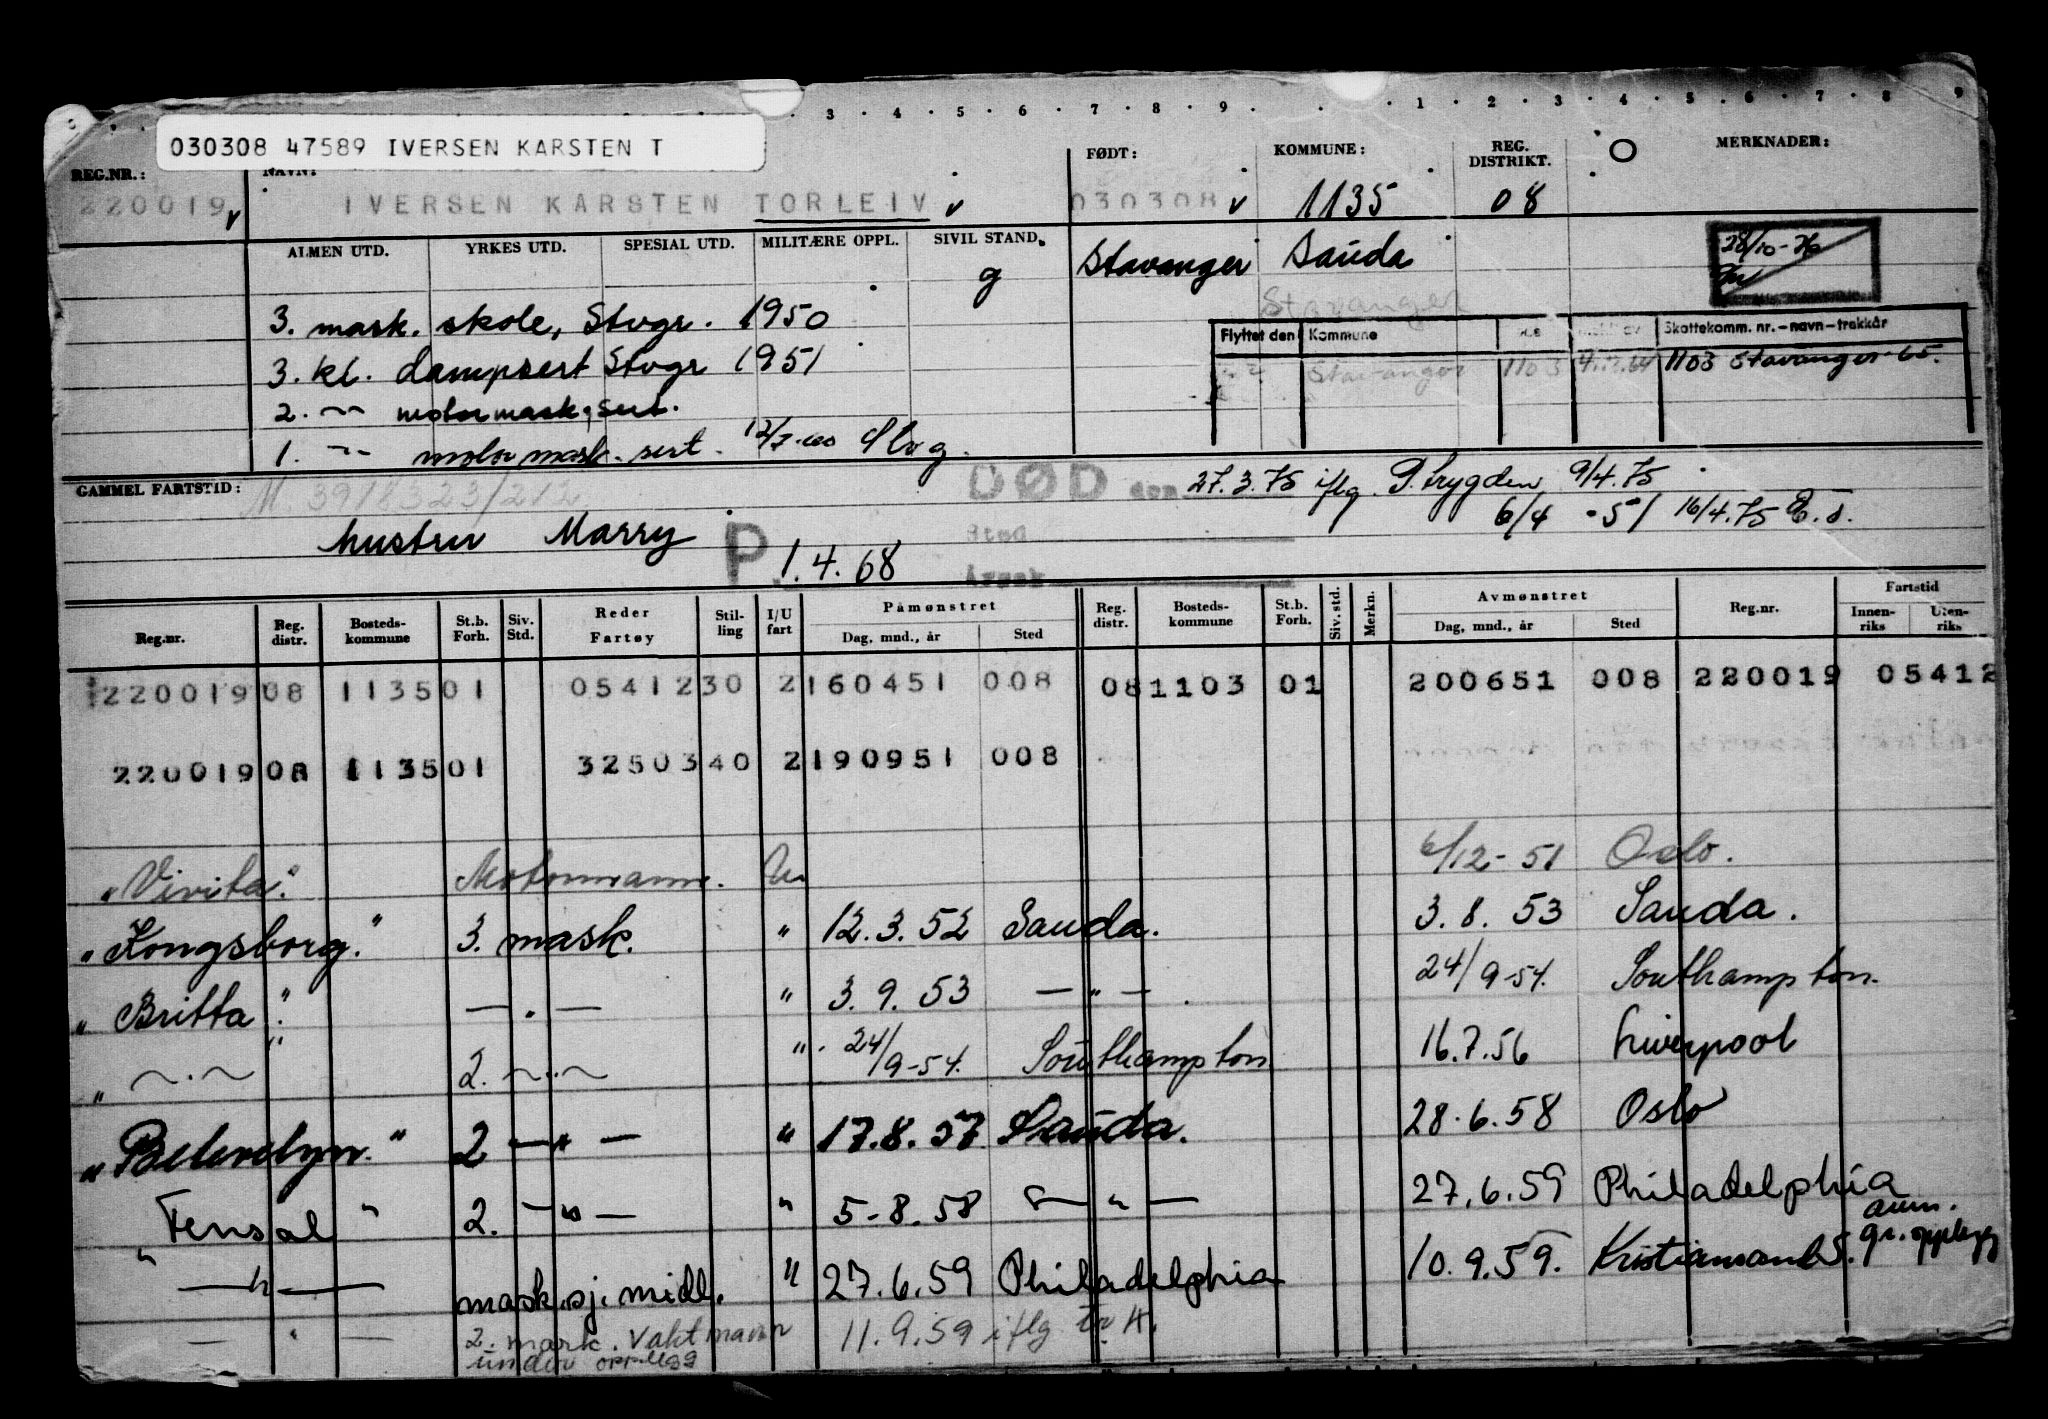 3 4 5 6 7 8 9 1 2 3 4 5 6 7 8 9
030308 47589 IVERSEN KARSTEN T
REG.NR.: NAVN: FØDT: KOMMUNE: REG. DISTRIKT. O MERKNADER:
220019 IVERSEN KARSTEN TORLEIV 030308 1135 08
ALMEN UTD. YRKES UTD. SPESIAL UTD. MILITÆRE OPPL. SIVIL STAND.
g Stavanger Sauda 28/10-76
Stavanger
3. mask. skole, Stvgr. 1950
Flyttet den Kommune Skattekomm. nr.-navn-trekkår
3. kl. dampsert Stvgr 1951
Stavanger 1103 1103 Stavanger 65.
2. -"- motormask.sert.
1. -"- motormask.sert. Stvg.
GAMMEL FARTSTID: M. 3918323/212 DØD den 27.3.75 iflg. P.trygden 9/4.75
6/4 -51 16/4.75
hustru Marry Sted
P 1.4.68 Årsak
Reg.nr. Reg. distr. Bosteds-kommune St.b. Forh. Siv. Std. Reder Fartøy Stil-ling I/U fart Påmønstret Dag, mnd., år Sted Reg. distr. Bosteds-kommune St.b. Forh. Siv. std. Merkn. Avmønstret Dag, mnd., år Sted Reg.nr. Fartstid Innen-riks Uten-riks
220019 08 1135 01 05412 30 2 160451 008 08 1103 01 200651 008 220019 05412
220019 08 1135 01 32503 40 2 190951 008
"Vivita". Motormann. U 6/12-51 Oslo.
"Kongsborg." 3. mask. " 12.3.52 Sauda. 3.8.53 Sauda.
"Britta". — " — " 3.9.53 — " — . 24/9-54. Southampton.
" — " — " 2. — " — " 24/9-54. Southampton 16.7.56 Liverpool
"Belevelyn." 2 — " — " 17.8.57 Sauda. 28.6.58 Oslo
"Fensal" 2. — " — " 5-8.58 — " — 27.6.59 Philadelphia
— " — mask.sj.midl. " 27.6.59 Philadelphia 10.9.59. Kristiansand S. avm. gr. opplegg
— " — 2. mask. Vaktmann under opplegg 11.9.59 iflg Tr.H.